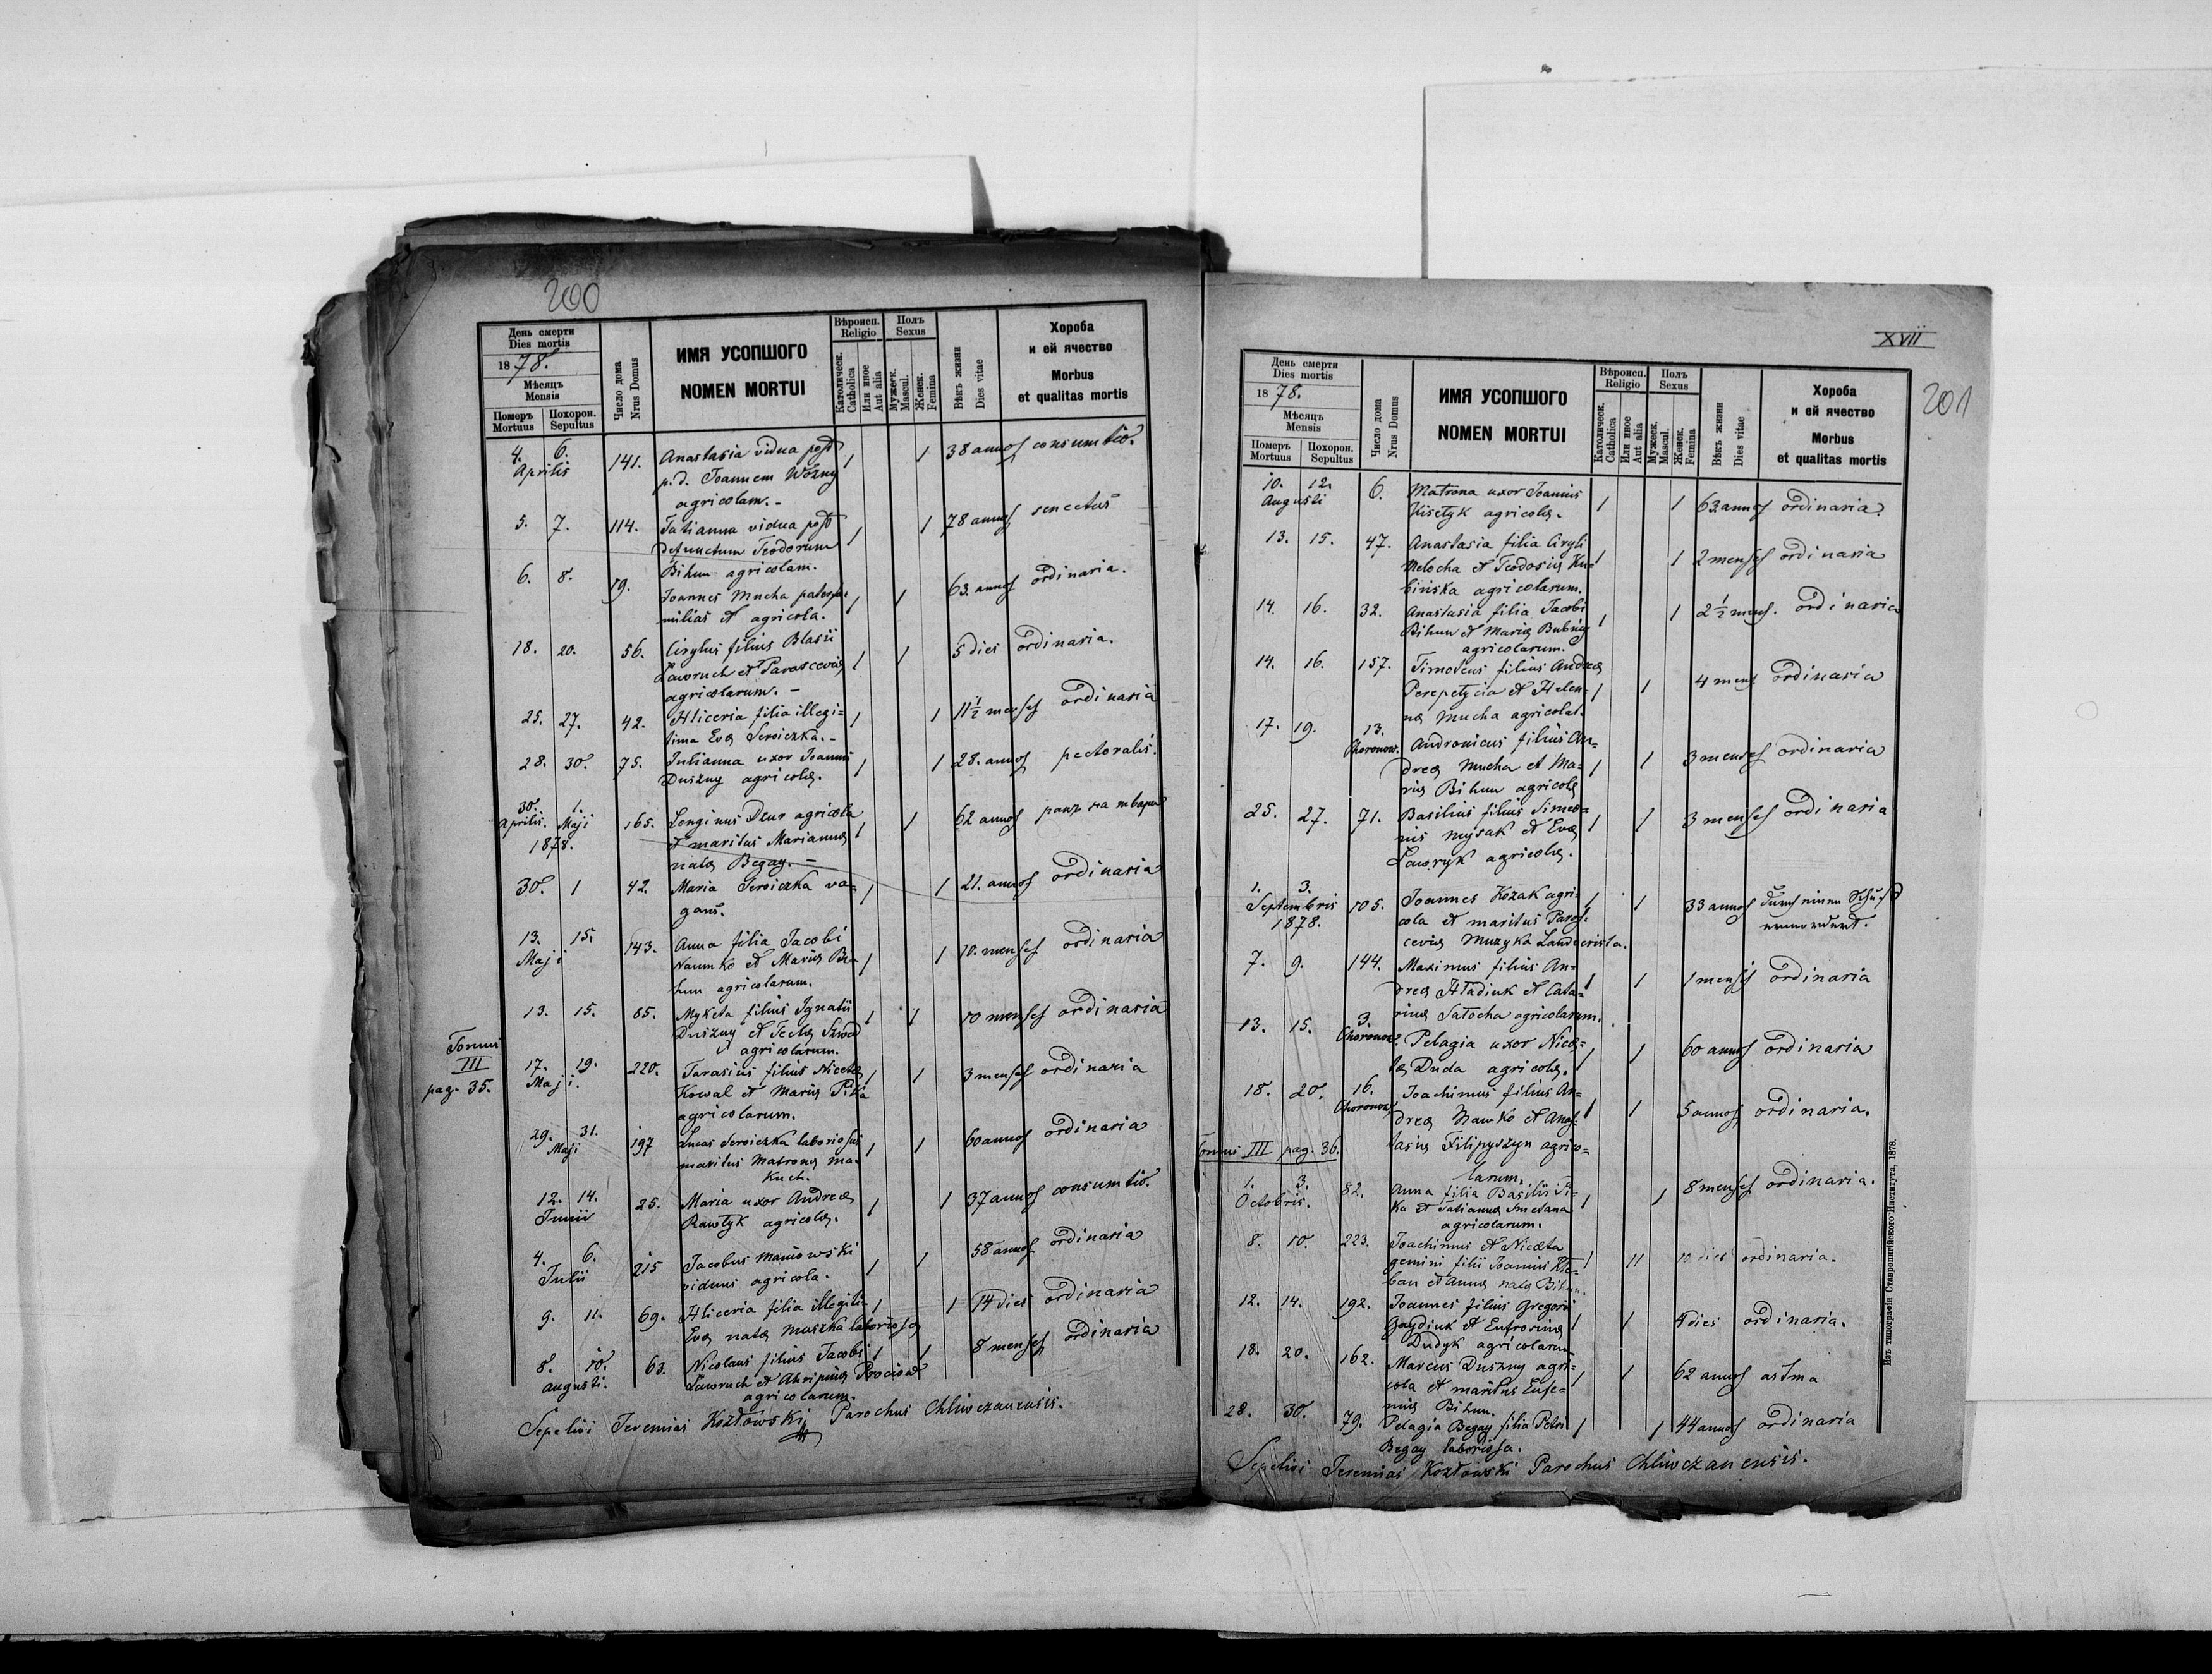 200
День смерти
Dies mortis
1878.
Мѣсяцъ
Mensis
Померъ Похорон.
Mortuus Sepultus
Число дома
Nrus Domus
ИМЯ УСОПШОГО
NOMEN MORTUI
Вѣроисп.
Religio
Католическ.
Catholica
Или иное
Aut alia
Полъ
Sexus
Мужеск.
Mascul.
Женск.
Femina
Вѣкъ жизни
Dies vitae
Хороба
и ей ячество
Morbus
et qualitas mortis
4. 6. Aprilis 141. Anastasia vidua post 1 1 38 annos consumtio.
p. d. Joannem Wozny
agricolam.-
5. 7. 114. Tatianna vidua post 1 1 78 annos senectus
defunctum Teodorum
Bihun agricolam.
6. 8. 19. Joannes Mucha paterfa- 1 1 63. annos ordinaria.
milias et agricola.
18. 20. 56. Cirylus filius Blasii 1 1 5 dies ordinaria.
Lawruch et Parascevia
agricolarum.-
25. 27. 42. Hliceria filia illegi= 1 1 11 1/2 menses ordinaria
tima Eva Seroiczka.-
28. 30. 75. Julianna uxor Joannis 1 1 28. annos pectoralis.
Duszny agricolae.
30. Aprilis. 1. Maji 1878. 165. Longinus Dzur agricola 1 1 62 annos ракъ на твари
et maritus Marianna
nata Begay.-
30. 1 42. Maria Seroiczka va= 1 1 21. annos ordinaria
gans.
13. 15. Maji 143. Anna filia Jacobi 1 1 10. menses ordinaria
Naumko et Maria Bi=
hun agricolarum.
13. 15. 85. Myketa filius Ignatii 1 1 10 menses ordinaria
Duszny et Tecla Szwed
agricolarum.
Tomus
III
pag. 35.
17. 19. Maji. 220. Tarasius filius Niceta 1 1 3 menses ordinaria
Kowal et Maria Pika
agricolarum.
29. 31. Maji 197 Lucas Seroiczka laboriosus 1 1 60 annos ordinaria
maritus Matrona Ma-
kuch.
12. 14. Junii 25. Maria uxor Andrea 1 1 37 annos consumtio.
Rawlyk agricolae.
4. 6. Julii 215 Jacobus Maniowski 1 1 58 annos ordinaria
viduus agricola.
9. 11. 69. Hliceria filia illegitima 1 1 14 dies ordinaria
Eva nata Muszka laboriosa
8. 10. Augusti. 63. Nicolaus filius Jacobi 1 1 8 menses ordinaria
Lawruch et Akripina
agricolarum.
Sepelivi Jeremias Kozłowski Parochus Chliwczanensis.
XVII
201
День смерти
Dies mortis
1878.
Мѣсяцъ
Mensis
Померъ Похорон.
Mortuus Sepultus
Число дома
Nrus Domus
ИМЯ УСОПШОГО
NOMEN MORTUI
Вѣроисп.
Religio
Католическ.
Catholica
Или иное
Aut alia
Полъ
Sexus
Мужеск.
Mascul.
Женск.
Femina
Вѣкъ жизни
Dies vitae
Хороба
и ей ячество
Morbus
et qualitas mortis
10. 12. Augusti 6. Matrona uxor Joannis 1 1 63. annos ordinaria.
Kisetyk agricolae.
13. 15. 47. Anastasia filia Ciryli 1 1 2 menses ordinaria
Melocha et Teodosia Ku=
binska agricolarum.
14. 16. 32. Anastasia filia Jacobi 1 1 2 1/2 mens. ordinaria
Bihun et Maria Bubniy
agricolarum.
14. 16. 157. Timoteus filius Andrea 1 1 4 mens ordinaria
Perepetycia et Helen=
na Mucha agricolar.
17. 19. 13. Choronow. Andronicus filius An= 1 1 3 menses ordinaria
drea Mucha et Ma=
ria Bihun agricola
25. 27. 71. Basilius filius Simeo= 1 1 3 menses ordinaria
nis Mysak et Eva
Lawryk agricolae.
1. 3. Septembris 1878. 105. Joannes Kozak agri= 1 1 33 annos durch einen Schuss
ermordert.
cola et maritus Paras=
cevia Muzyka
7. 9. 144. Maximus filius An= 1 1 1 mensis ordinaria
drea Hladiuk et Cata=
rina Satocha agricolarum.
13. 15. 3. Choronow. Pelagia uxor Nico= 1 1 60 annos ordinaria
la Duda agricolae.
18. 20. 16. Choronow. Joachimus filius An= 1 1 5 annos ordinaria.
drea Nawko et Anas=
tasia Filipyszyn agrico=
larum.
Tomus III pag. 36.
1. 3. Octobris. 82. Anna filia Basilii Pi= 1 1 8 menses ordinaria.
ka et Tatianna Smetana
agricolarum.
8. 10. 223. Joachimus et Niceta 1 11 10 dies ordinaria.
gemini filii Joannis Kle=
ban et Anna nata Bihun.
12. 14. 192. Joannes filius Gregorii 1 1 4 dies ordinaria.
Gaydiuk et Eufrosina
Dudyk agricolarum
18. 20. 162. Marcus Duszny agri= 1 1 62 annos astma
cola et maritus Eufe=
mia Bihun.
28. 30. 79. Pelagia Begay filia Petri 1 1 44 annos ordinaria
Begay laboriosa.
Sepelivi Jeremias Kozłowski Parochus Chliwczanensis.
Изъ типографіи Ставропигійского Института, 1878.